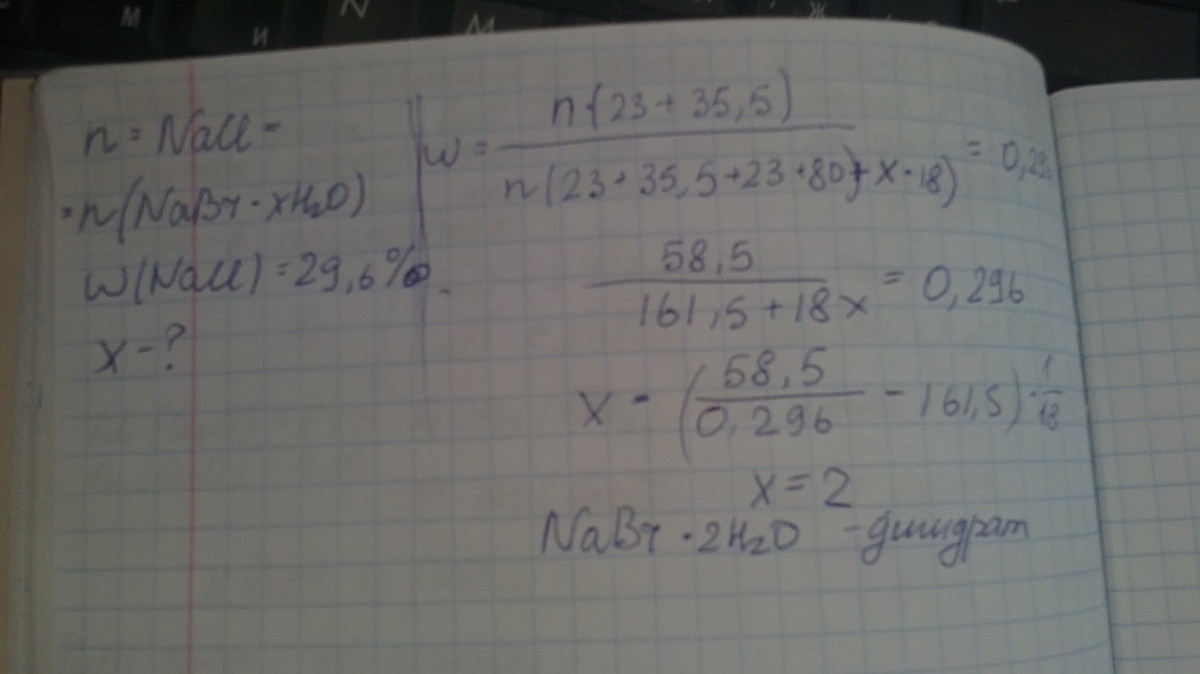 м
и
N
М
ж
n = NaCl =
= n(NaBr · xH₂O)
W(NaCl) = 29,6%
x - ?
W = n·(23 + 35,5) / n(23 + 35,5 + 23 + 80) + x · 18) = 0,296
58,5 / 161,5 + 18x = 0,296
x = (58,5 / 0,296 - 161,5) · 1/18
x = 2
NaBr · 2H₂O - дигидрат